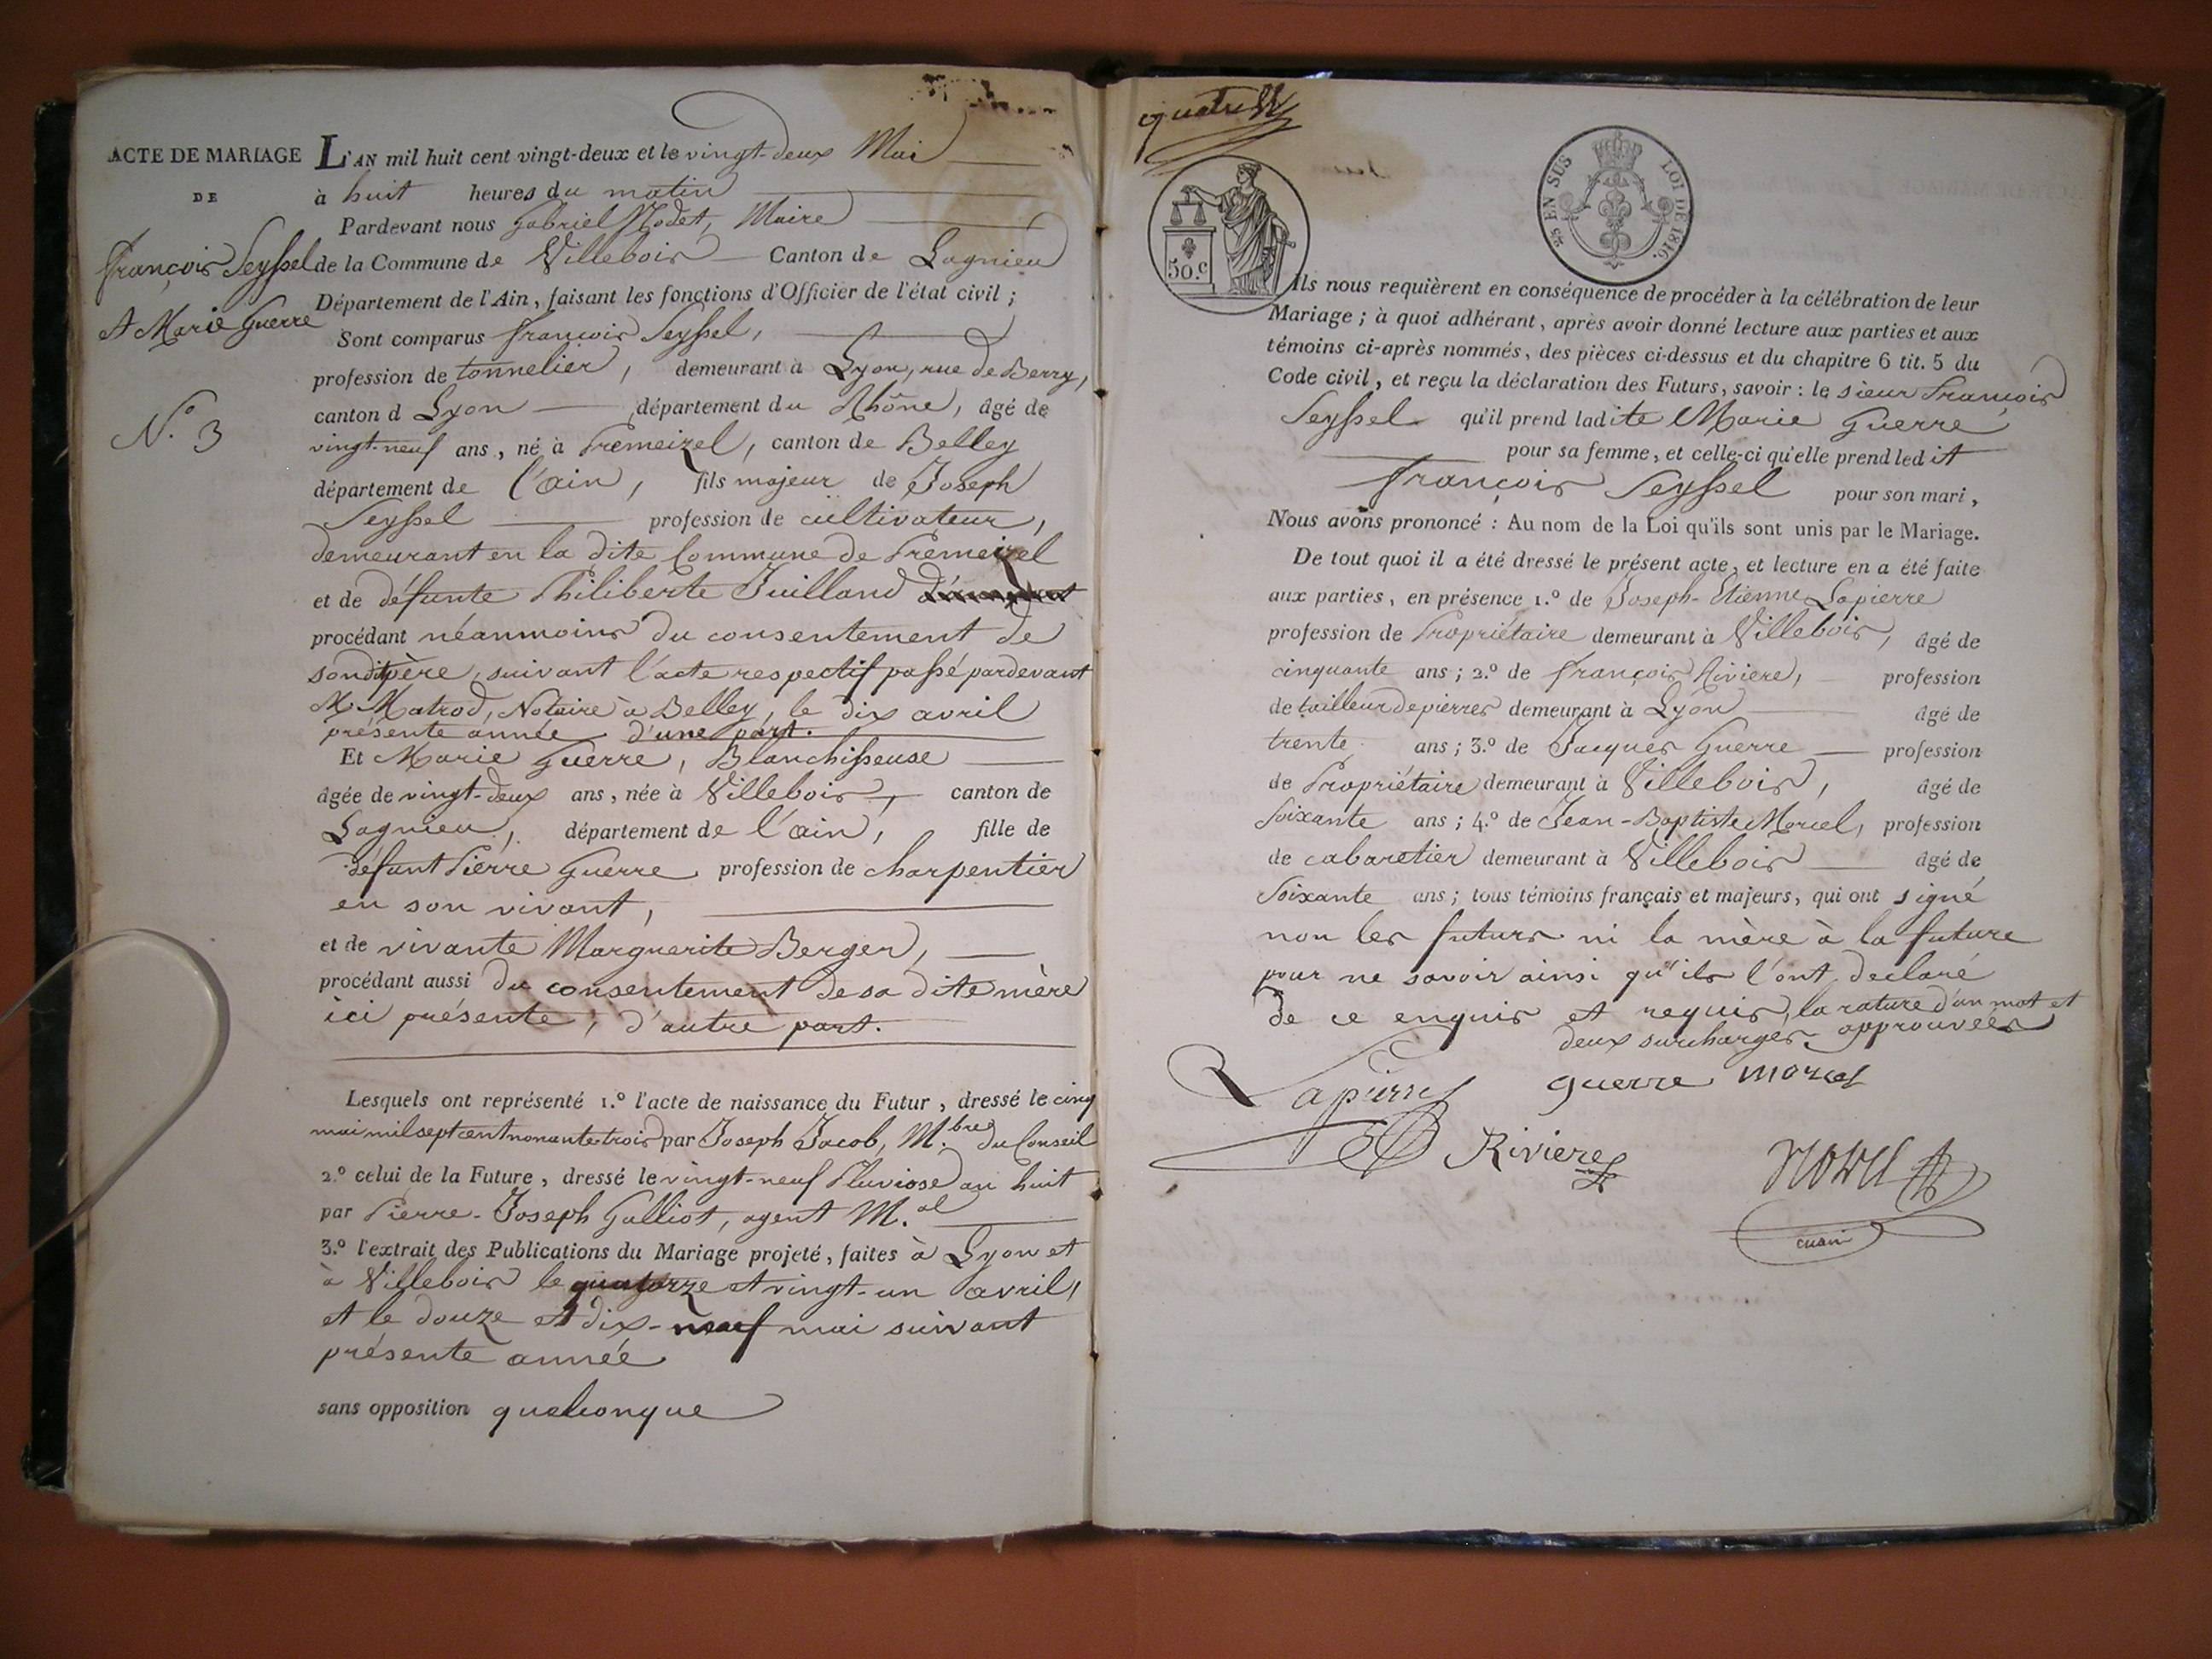 ACTE DE MARIAGE
DE
François Seyssel
et Marie Guerre
N.º 3
L'AN mil huit cent vingt-deux et le vingt-deux Mai
à huit heures du matin
Pardevant nous Gabriel Nodet, Maire
de la Commune de Villebois Canton de Lagnieu
Département de l'Ain, faisant les fonctions d'Officier de l'état civil ;
Sont comparus françois Seyssel,
profession de tonnelier, demeurant à Lyon, rue de Berry,
canton d Lyon département du Rhône, âgé de
vingt-neuf ans, né à Premeizel, canton de Belley
département de l'ain, fils majeur de Joseph
Seyssel profession de cultivateur,
demeurant en la dite Commune de Premeizel
et de défunte Philiberte Juilland
procédant néanmoins du consentement de
sondit père, suivant l'acte respectif passé pardevant
M.e Matrod, Notaire à Belley, le dix avril
présente année d'une part.
Et Marie Guerre, Blanchisseuse
âgée de vingt-deux ans, née à Villebois, canton de
Lagnieu, département de l'ain, fille de
défunt Pierre Guerre profession de charpentier
en son vivant,
et de vivante Marguerite Berger,
procédant aussi du consentement de sa dite mère
ici présente, d'autre part.
Lesquels ont représenté 1.º l'acte de naissance du Futur, dressé le cinq
mai mil sept cent nonante-trois par Joseph Jacob, M.bre du Conseil
2.º celui de la Future, dressé le vingt-neuf Pluviose an huit
par Pierre-Joseph Galliot, agent M.al
3.º l'extrait des Publications du Mariage projeté, faites à Lyon et
à Villebois le quatorze et vingt-un avril,
et le douze et dix-neuf mai suivant
présente année
sans opposition quelconque
quatre
50.c
25 EN SUS LOI DE 1816.
Ils nous requièrent en conséquence de procéder à la célébration de leur
Mariage ; à quoi adhérant, après avoir donné lecture aux parties et aux
témoins ci-après nommés, des pièces ci-dessus et du chapitre 6 tit. 5 du
Code civil, et reçu la déclaration des Futurs, savoir : le sieur François
Seyssel qu'il prend ladite Marie Guerre
pour sa femme, et celle-ci qu'elle prend ledit
françois Seyssel pour son mari,
Nous avons prononcé : Au nom de la Loi qu'ils sont unis par le Mariage.
De tout quoi il a été dressé le présent acte, et lecture en a été faite
aux parties, en présence 1.º de Joseph-Etienne Lapierre
profession de Propriétaire demeurant à Villebois, âgé de
cinquante ans ; 2.º de françois Riviere, profession
de tailleur de pierres demeurant à Lyon âgé de
trente ans ; 3.º de Jacques Guerre profession
de Propriétaire demeurant à Villebois, âgé de
Soixante ans ; 4.º de Jean-Baptiste Morcel, profession
de cabaretier demeurant à Villebois âgé de
Soixante ans ; tous témoins français et majeurs, qui ont signé
non les futurs ni la mère à la future
pour ne savoir ainsi qu'ils l'ont déclaré
de ce enquis et requis, la rature d'un mot et
deux surcharges approuvées
Lapierre guerre Morcel
Riviere